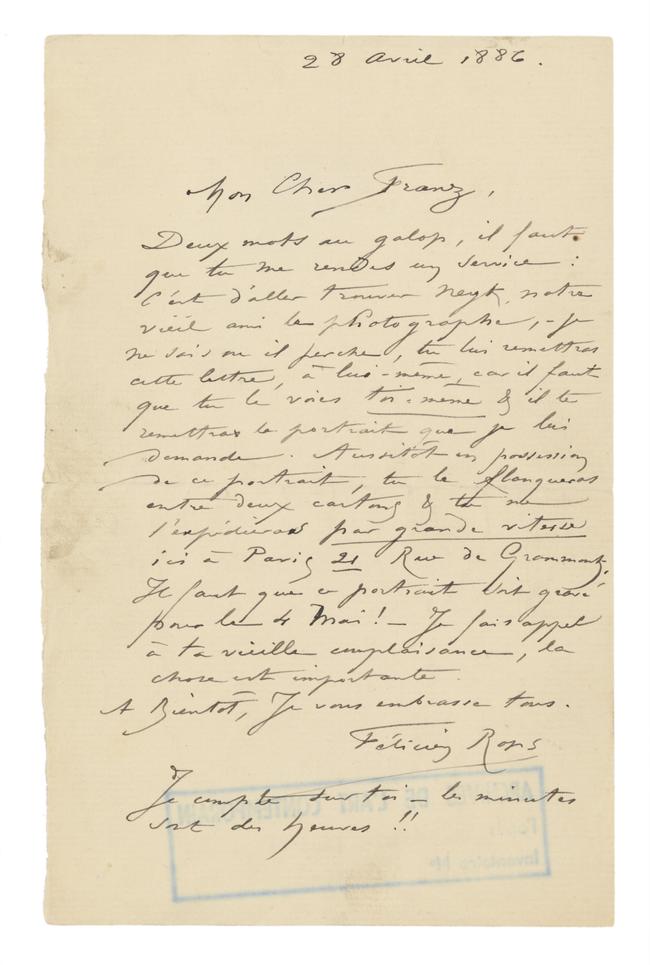 28 Avril 1886.
Mon Cher Franz,
Deux mots au galop, il faut
que tu me rendes un service :
C'est d'aller trouver Neyt, notre
vieil ami le photographe, – je
ne sais ou il perche, tu lui remettras
cette lettre, à lui-même, car il faut
que tu le voies toi-même & il te
remettra le portrait que je lui
demande. Aussitôt en possession
de ce portrait, tu le flanqueras
entre deux cartons & tu me
l'expédieras par grande vitesse
ici à Paris 21 Rue de Grammont.
Il faut que ce portrait soit gravé
pour le 4 Mai ! – Je fais appel
à ta vieille complaisance, la
chose est importante.
A Bientôt, Je vous embrasse tous.
Félicien Rops
Je compte sur toi – les minutes
sont des heures !!
ARCHIVES DE L'ART CONTEMPORAIN
Inventaire No